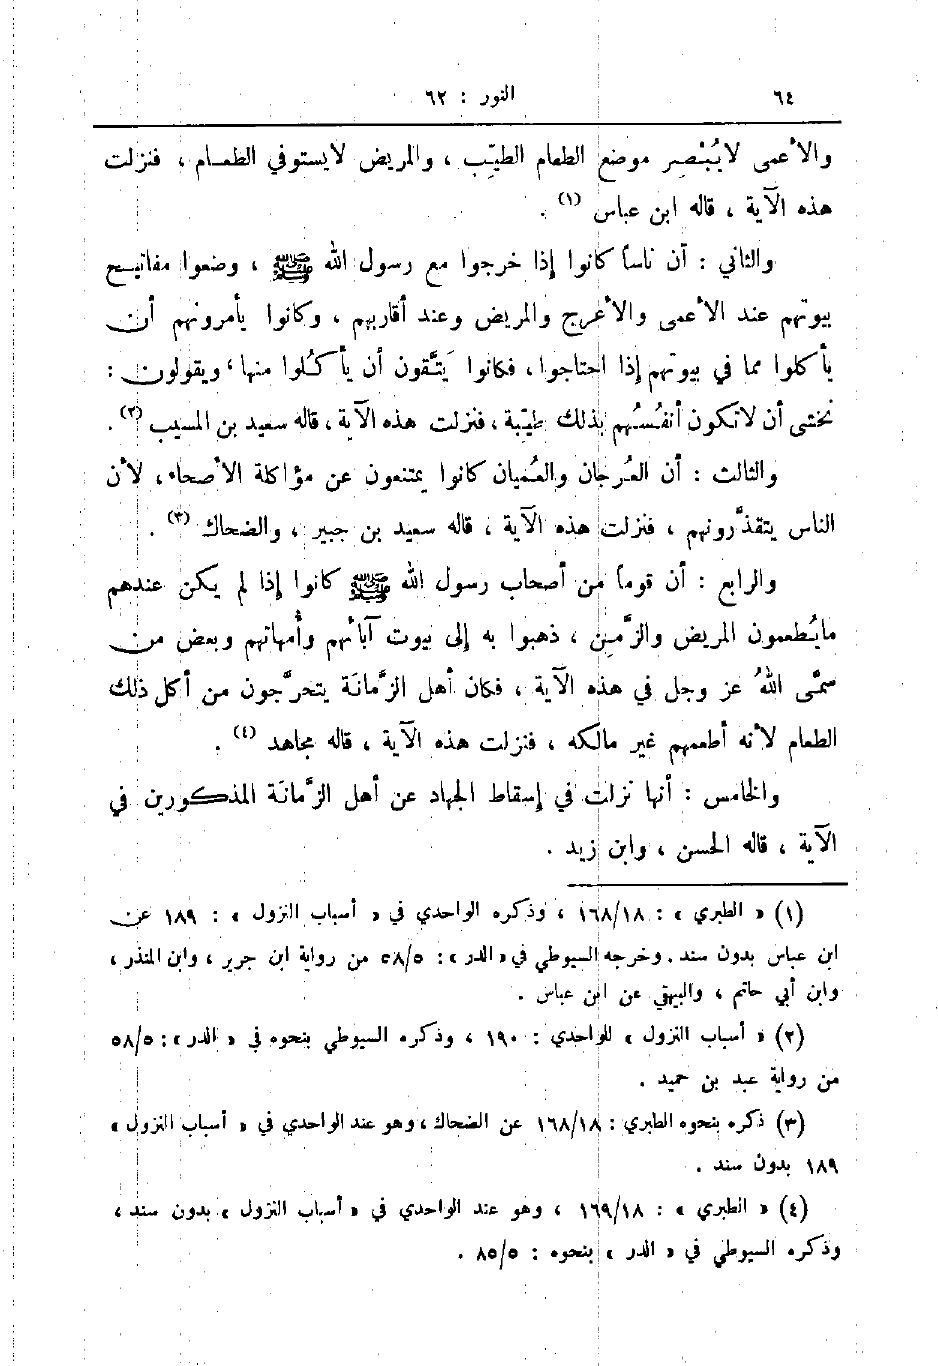 ٦٤ النور : ٦٢
والأعمى لايُبْصِر موضع الطعام الطيِّب ، والمريض لايستوفي الطعـام ، فنزلت
هذه الآية ، قاله ابن عباس (١) .
والثاني : أن ناساً كانوا إذا خرجوا مع رسول الله ﷺ ، وضعوا مفاتيح
بيوتهم عند الأعمى والأعرج والمريض وعند أقاربهم ، وكانوا يأمرونهم أن
يأكلوا مما في بيوتهم إذا احتاجوا ، فكانوا يَتَّقون أن يأكُلوا منها ، ويقولون :
نخشى أن لاتكون أنفُسُهم بذلك طيِّبة ، فنزلت هذه الآية ، قاله سعيد بن المسيب (٢) .
والثالث : أن العُرجان والعُميان كانوا يمتنعون عن مؤاكلة الأصحاء ، لأن
الناس يتقذَّرونهم ، فنزلت هذه الآية ، قاله سعيد بن جبير ، والضحاك (٣) .
والرابع : أن قوماً من أصحاب رسول الله ﷺ كانوا إذا لم يكن عندهم
مايُطعمون المريض والزَّمِن ، ذهبوا به إلى بيوت آبائهم وأُمهاتهم وبعض من
سمَّى اللهُ عز وجل في هذه الآية ، فكان أهل الزَّمانَة يتحرَّجون من أكل ذلك
الطعام لأنه أطعمهم غير مالكه ، فنزلت هذه الآية ، قاله مجاهد (٤) .
والخامس : أنها نزلت في إسقاط الجهاد عن أهل الزَّمانَة المذكورين في
الآية ، قاله الحسن ، وابن زيد .
(١) « الطبري » : ١٦٨/١٨ ، وذكره الواحدي في « أسباب النزول » : ١٨٩ عن
ابن عباس بدون سند . وخرجه السيوطي في « الدر » : ٥٨/٥ من رواية ابن جرير ، وابن المنذر ،
وابن أبي حاتم ، والبيهقي عن ابن عباس .
(٢) « أسباب النزول » للواحدي : ١٩٠ ، وذكره السيوطي بنحوه في « الدر » : ٥٨/٥
من رواية عبد بن حميد .
(٣) ذكره بنحوه الطبري : ١٦٨/١٨ عن الضحاك ، وهو عند الواحدي في « أسباب النزول »
١٨٩ بدون سند .
(٤) « الطبري » : ١٦٩/١٨ ، وهو عند الواحدي في « أسباب النزول » بدون سند ،
وذكره السيوطي في « الدر » بنحوه : ٨٥/٥ .